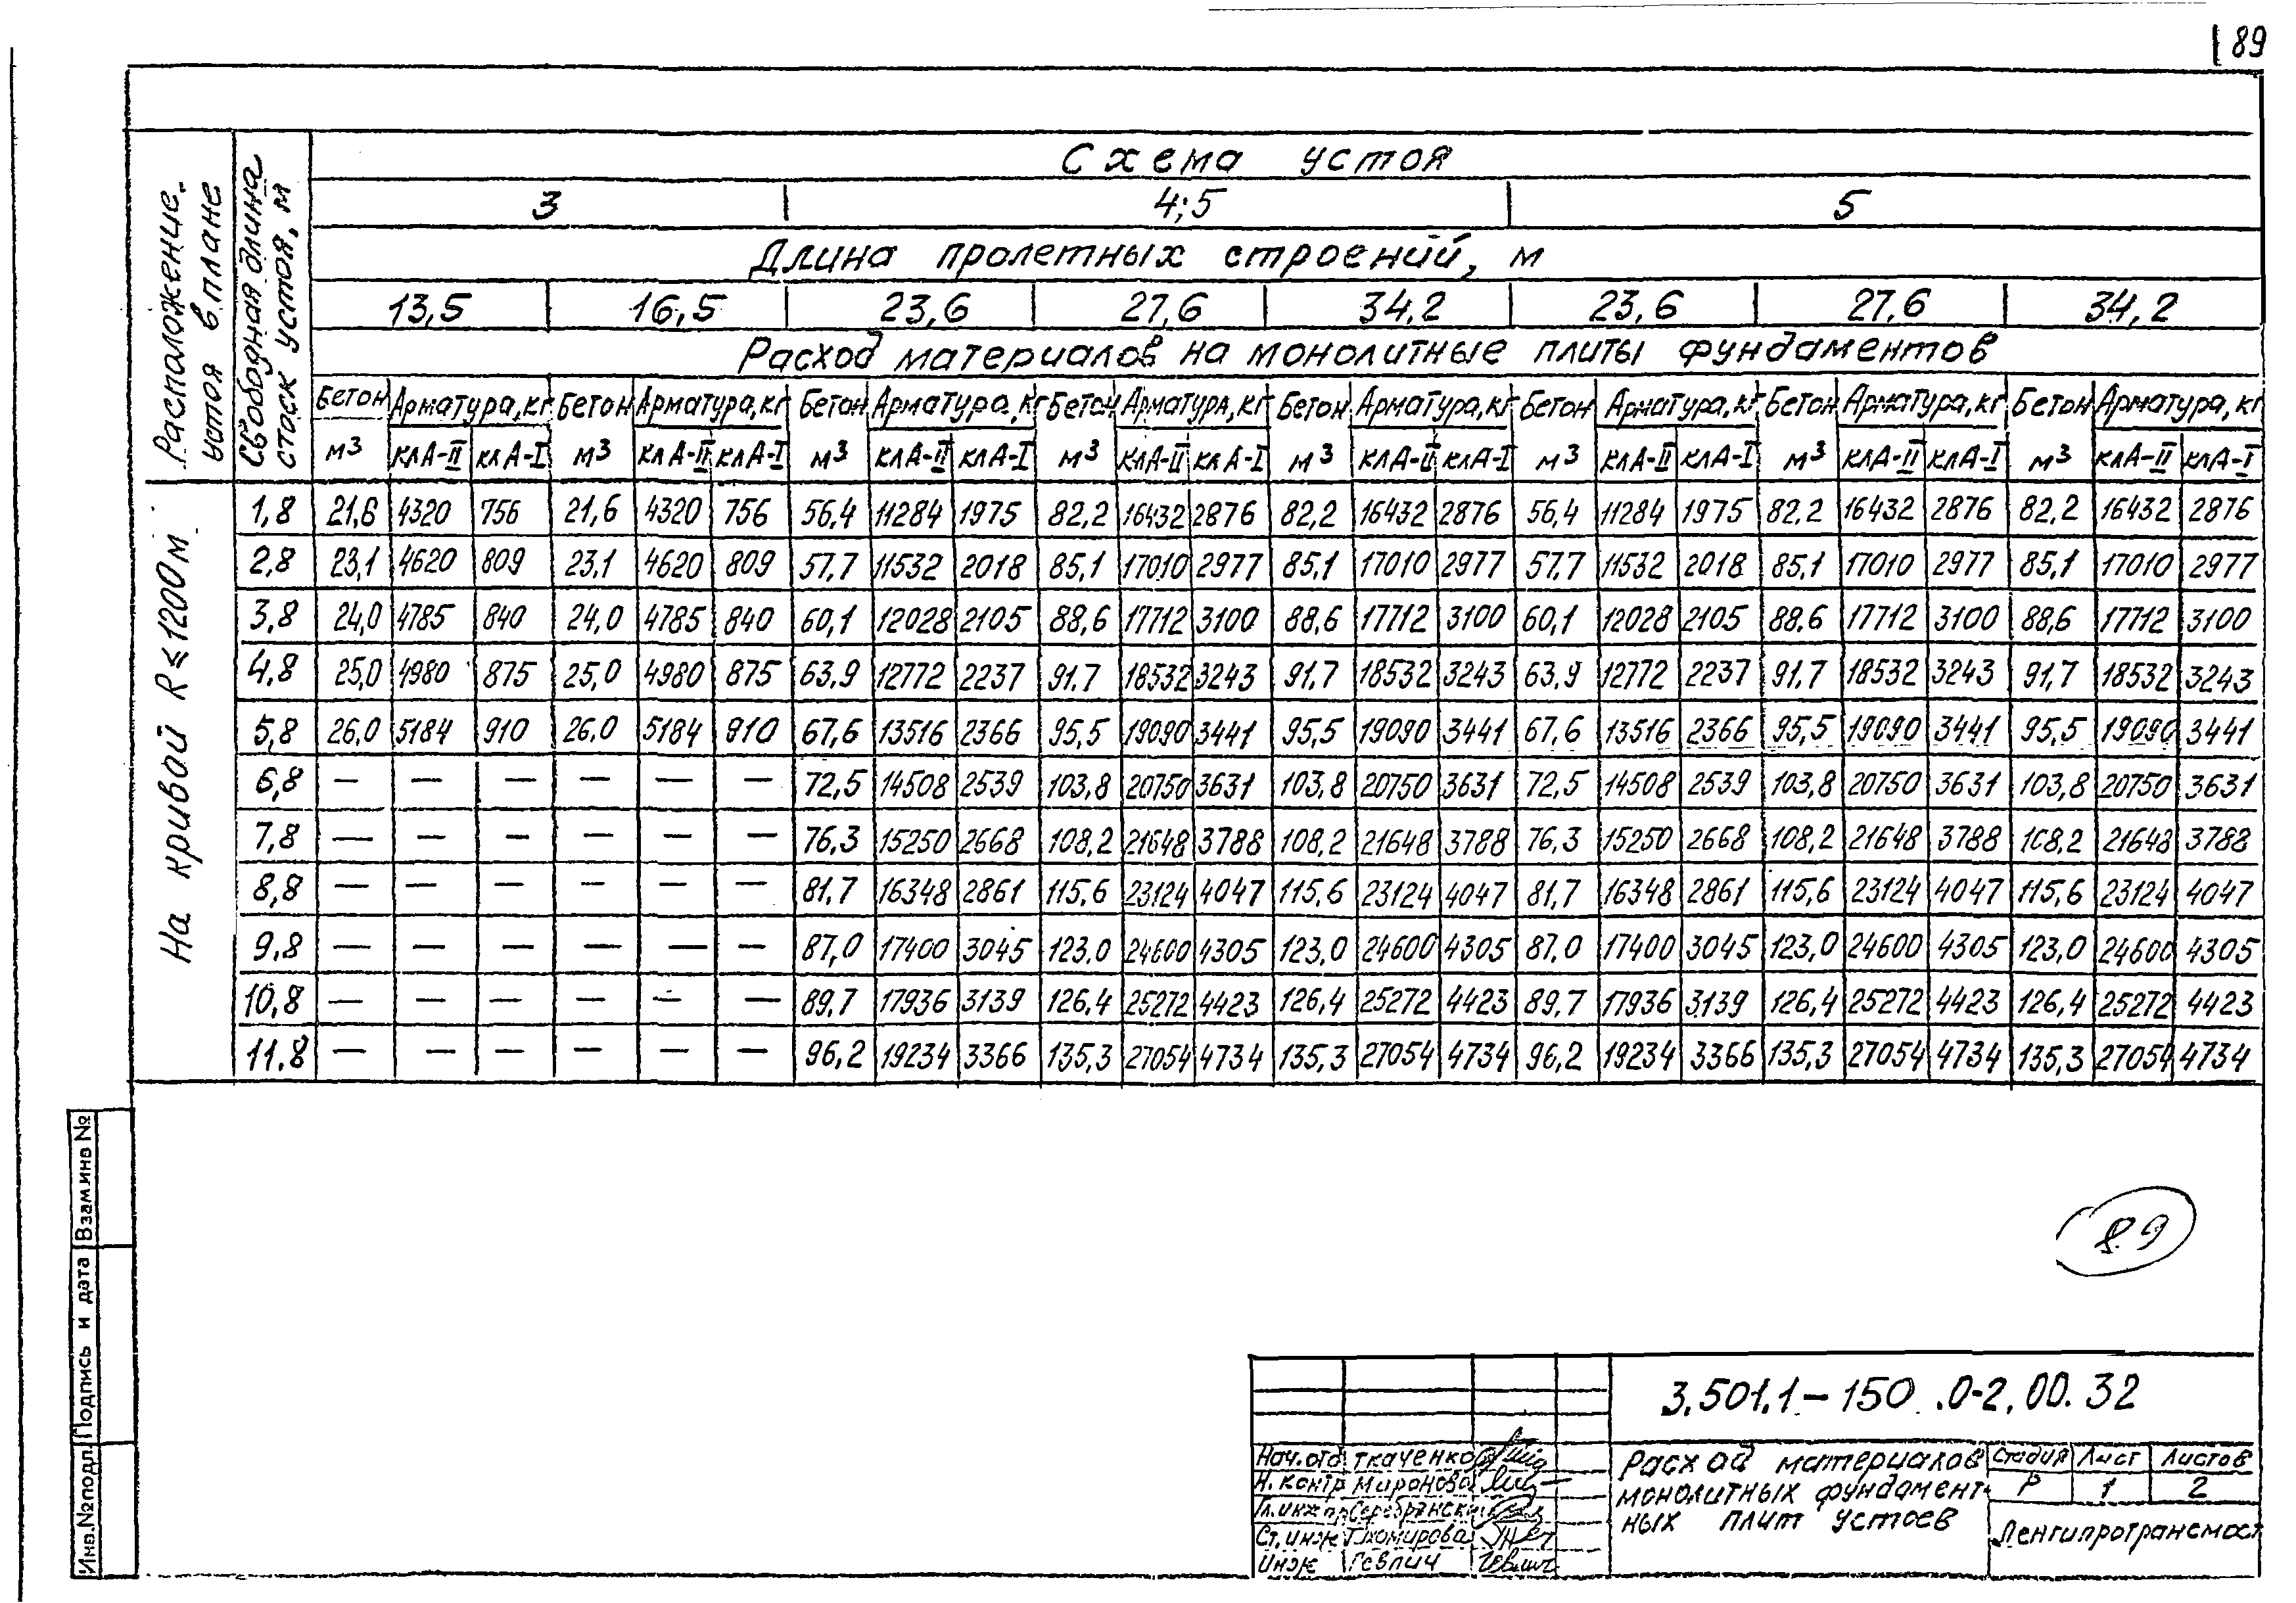 89
Расположение устоя в плане
Свободная длина стоек устоя, м
Схема устоя
3 4;5 5
Длина пролетных строений, м
13,5 16,5 23,6 27,6 34,2 23,6 27,6 34,2
Расход материалов на монолитные плиты фундаментов
Бетон Арматура, кг Бетон Арматура, кг Бетон Арматура, кг Бетон Арматура, кг Бетон Арматура, кг Бетон Арматура, кг Бетон Арматура, кг Бетон Арматура, кг
м3 кл А-II кл А-I м3 кл А-II кл А-I м3 кл А-II кл А-I м3 кл А-II кл А-I м3 кл А-II кл А-I м3 кл А-II кл А-I м3 кл А-II кл А-I м3 кл А-II кл А-I
На кривой R ≤ 1200м
1,8 21,6 4320 756 21,6 4320 756 56,4 11284 1975 82,2 16432 2876 82,2 16432 2876 56,4 11284 1975 82,2 16432 2876 82,2 16432 2876
2,8 23,1 4620 809 23,1 4620 809 57,7 11532 2018 85,1 17010 2977 85,1 17010 2977 57,7 11532 2018 85,1 17010 2977 85,1 17010 2977
3,8 24,0 4785 840 24,0 4785 840 60,1 12028 2105 88,6 17712 3100 88,6 17712 3100 60,1 12028 2105 88,6 17712 3100 88,6 17712 3100
4,8 25,0 4980 875 25,0 4980 875 63,9 12772 2237 91,7 18532 3243 91,7 18532 3243 63,9 12772 2237 91,7 18532 3243 91,7 18532 3243
5,8 26,0 5184 910 26,0 5184 910 67,6 13516 2366 95,5 19090 3441 95,5 19090 3441 67,6 13516 2366 95,5 19090 3441 95,5 19090 3441
6,8 — — — — — — 72,5 14508 2539 103,8 20750 3631 103,8 20750 3631 72,5 14508 2539 103,8 20750 3631 103,8 20750 3631
7,8 — — — — — — 76,3 15250 2668 108,2 21648 3788 108,2 21648 3788 76,3 15250 2668 108,2 21648 3788 108,2 21648 3788
8,8 — — — — — — 81,7 16348 2861 115,6 23124 4047 115,6 23124 4047 81,7 16348 2861 115,6 23124 4047 115,6 23124 4047
9,8 — — — — — — 87,0 17400 3045 123,0 24600 4305 123,0 24600 4305 87,0 17400 3045 123,0 24600 4305 123,0 24600 4305
10,8 — — — — — — 89,7 17936 3139 126,4 25272 4423 126,4 25272 4423 89,7 17936 3139 126,4 25272 4423 126,4 25272 4423
11,8 — — — — — — 96,2 19234 3366 135,3 27054 4734 135,3 27054 4734 96,2 19234 3366 135,3 27054 4734 135,3 27054 4734
89
Инв.№подл. Подпись и дата Взам.инв №
3.501.1-150.0-2.00.32
Нач.отд Ткаченко
Н.контр Миронова
Гл.инж.пр Серебрянский
Ст.инж Тихомирова
Инж Гевлич
Расход материалов
монолитных фундамент-
ных плит устоев
Стадия Лист Листов
Р 1 2
Ленгипротрансмост